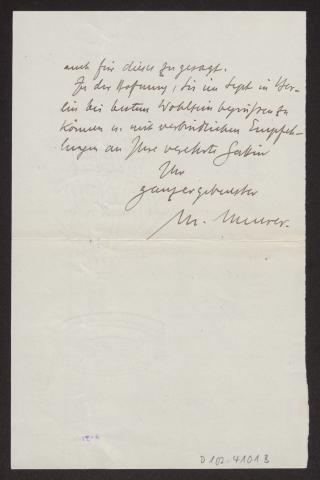 auch für dieses zugesagt.
In der Hoffnung, Sie im Sept in Ber-
lin bei bestem Wohlsein begrüssen zu
können u. mit verbindlichen Empfeh-
lungen an Ihre verehrte Gattin
Ihr
ganz ergebenster
M. Meurer.
D 102-4101.3